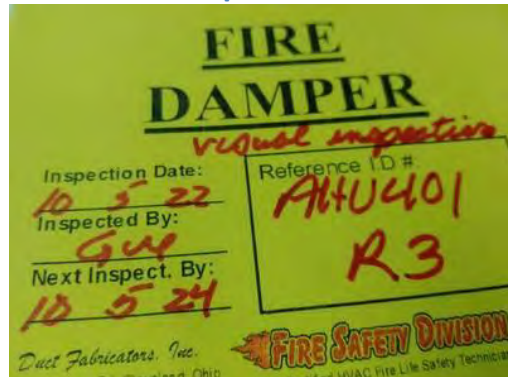 FIRE
DAMPER
visual inspection
Inspection Date:
10 5 22
Inspected By:
Next Inspect. By:
10 5 24
Reference I.D #:
AHU401
R3
Duct Fabricators, Inc.
Ohio
FIRE SAFETY DIVISION
HVAC Fire Life Safety Technician